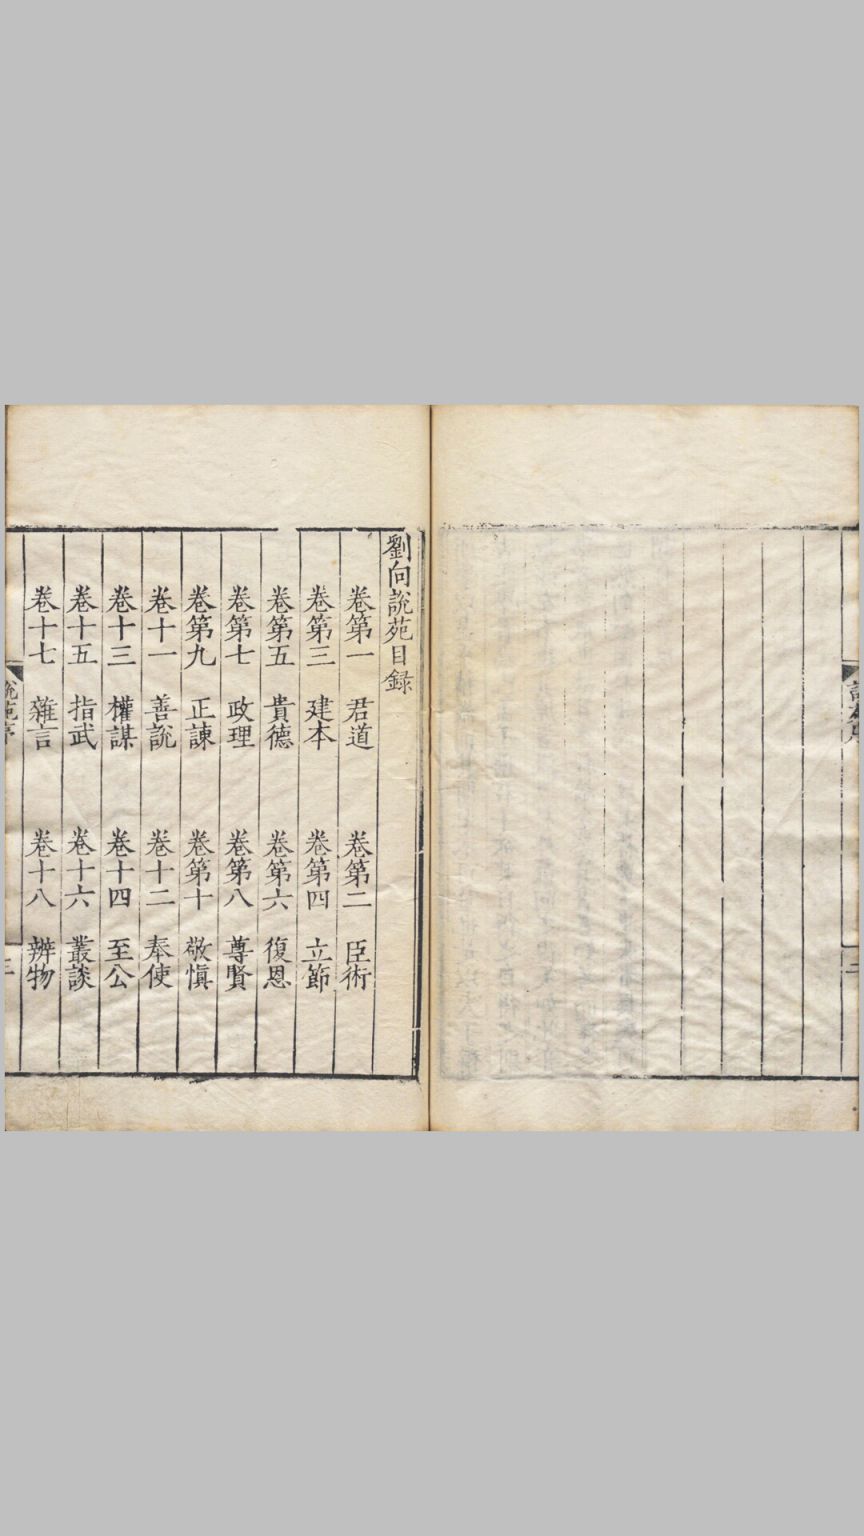 劉向說苑目録
卷第一 君道 卷第二 臣術
卷第三 建本 卷第四 立節
卷第五 貴德 卷第六 復恩
卷第七 政理 卷第八 尊賢
卷第九 正諫 卷第十 敬慎
卷十一 善說 卷十二 奉使
卷十三 權謀 卷十四 至公
卷十五 指武 卷十六 叢談
卷十七 雜言 卷十八 辨物
說苑序